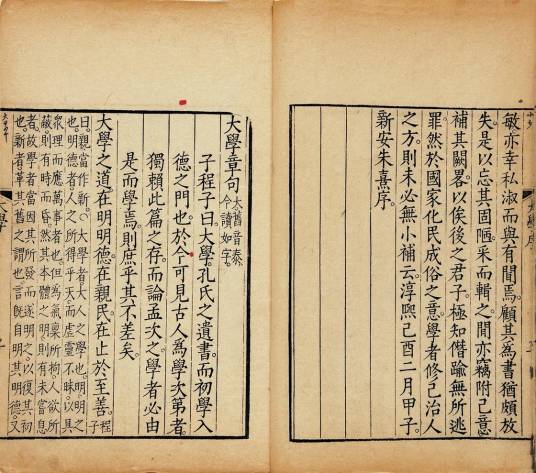 敏亦幸私淑而與有聞焉。顧其為書猶頗放
失。是以忘其固陋。采而輯之。間亦竊附己意
補其闕畧。以俟後之君子。極知僭踰無所逃
罪。然於國家化民成俗之意。學者修己治人
之方。則未必無小補云。淳熙己酉二月甲子。
新安朱熹序。
大學章句 大舊音泰。今讀如字。
子程子曰。大學。孔氏之遺書。而初學入
德之門也。於今可見古人為學次第者。
獨賴此篇之存。而論孟次之。學者必由
是而學焉。則庶乎其不差矣。
大學之道。在明明德。在親民。在止於至善。程子
曰。親當作新。○大學者。大人之學也。明。明之
也。明德者。人之所得乎天而虛靈不昧。以具
衆理而應萬事者也。但為氣稟所拘。人欲所
蔽。則有時而昏。然其本體之明。則有未嘗息
者。故學者當因其所發而遂明之。以復其初
也。新者。革其舊之謂也。言既自明其明德。又